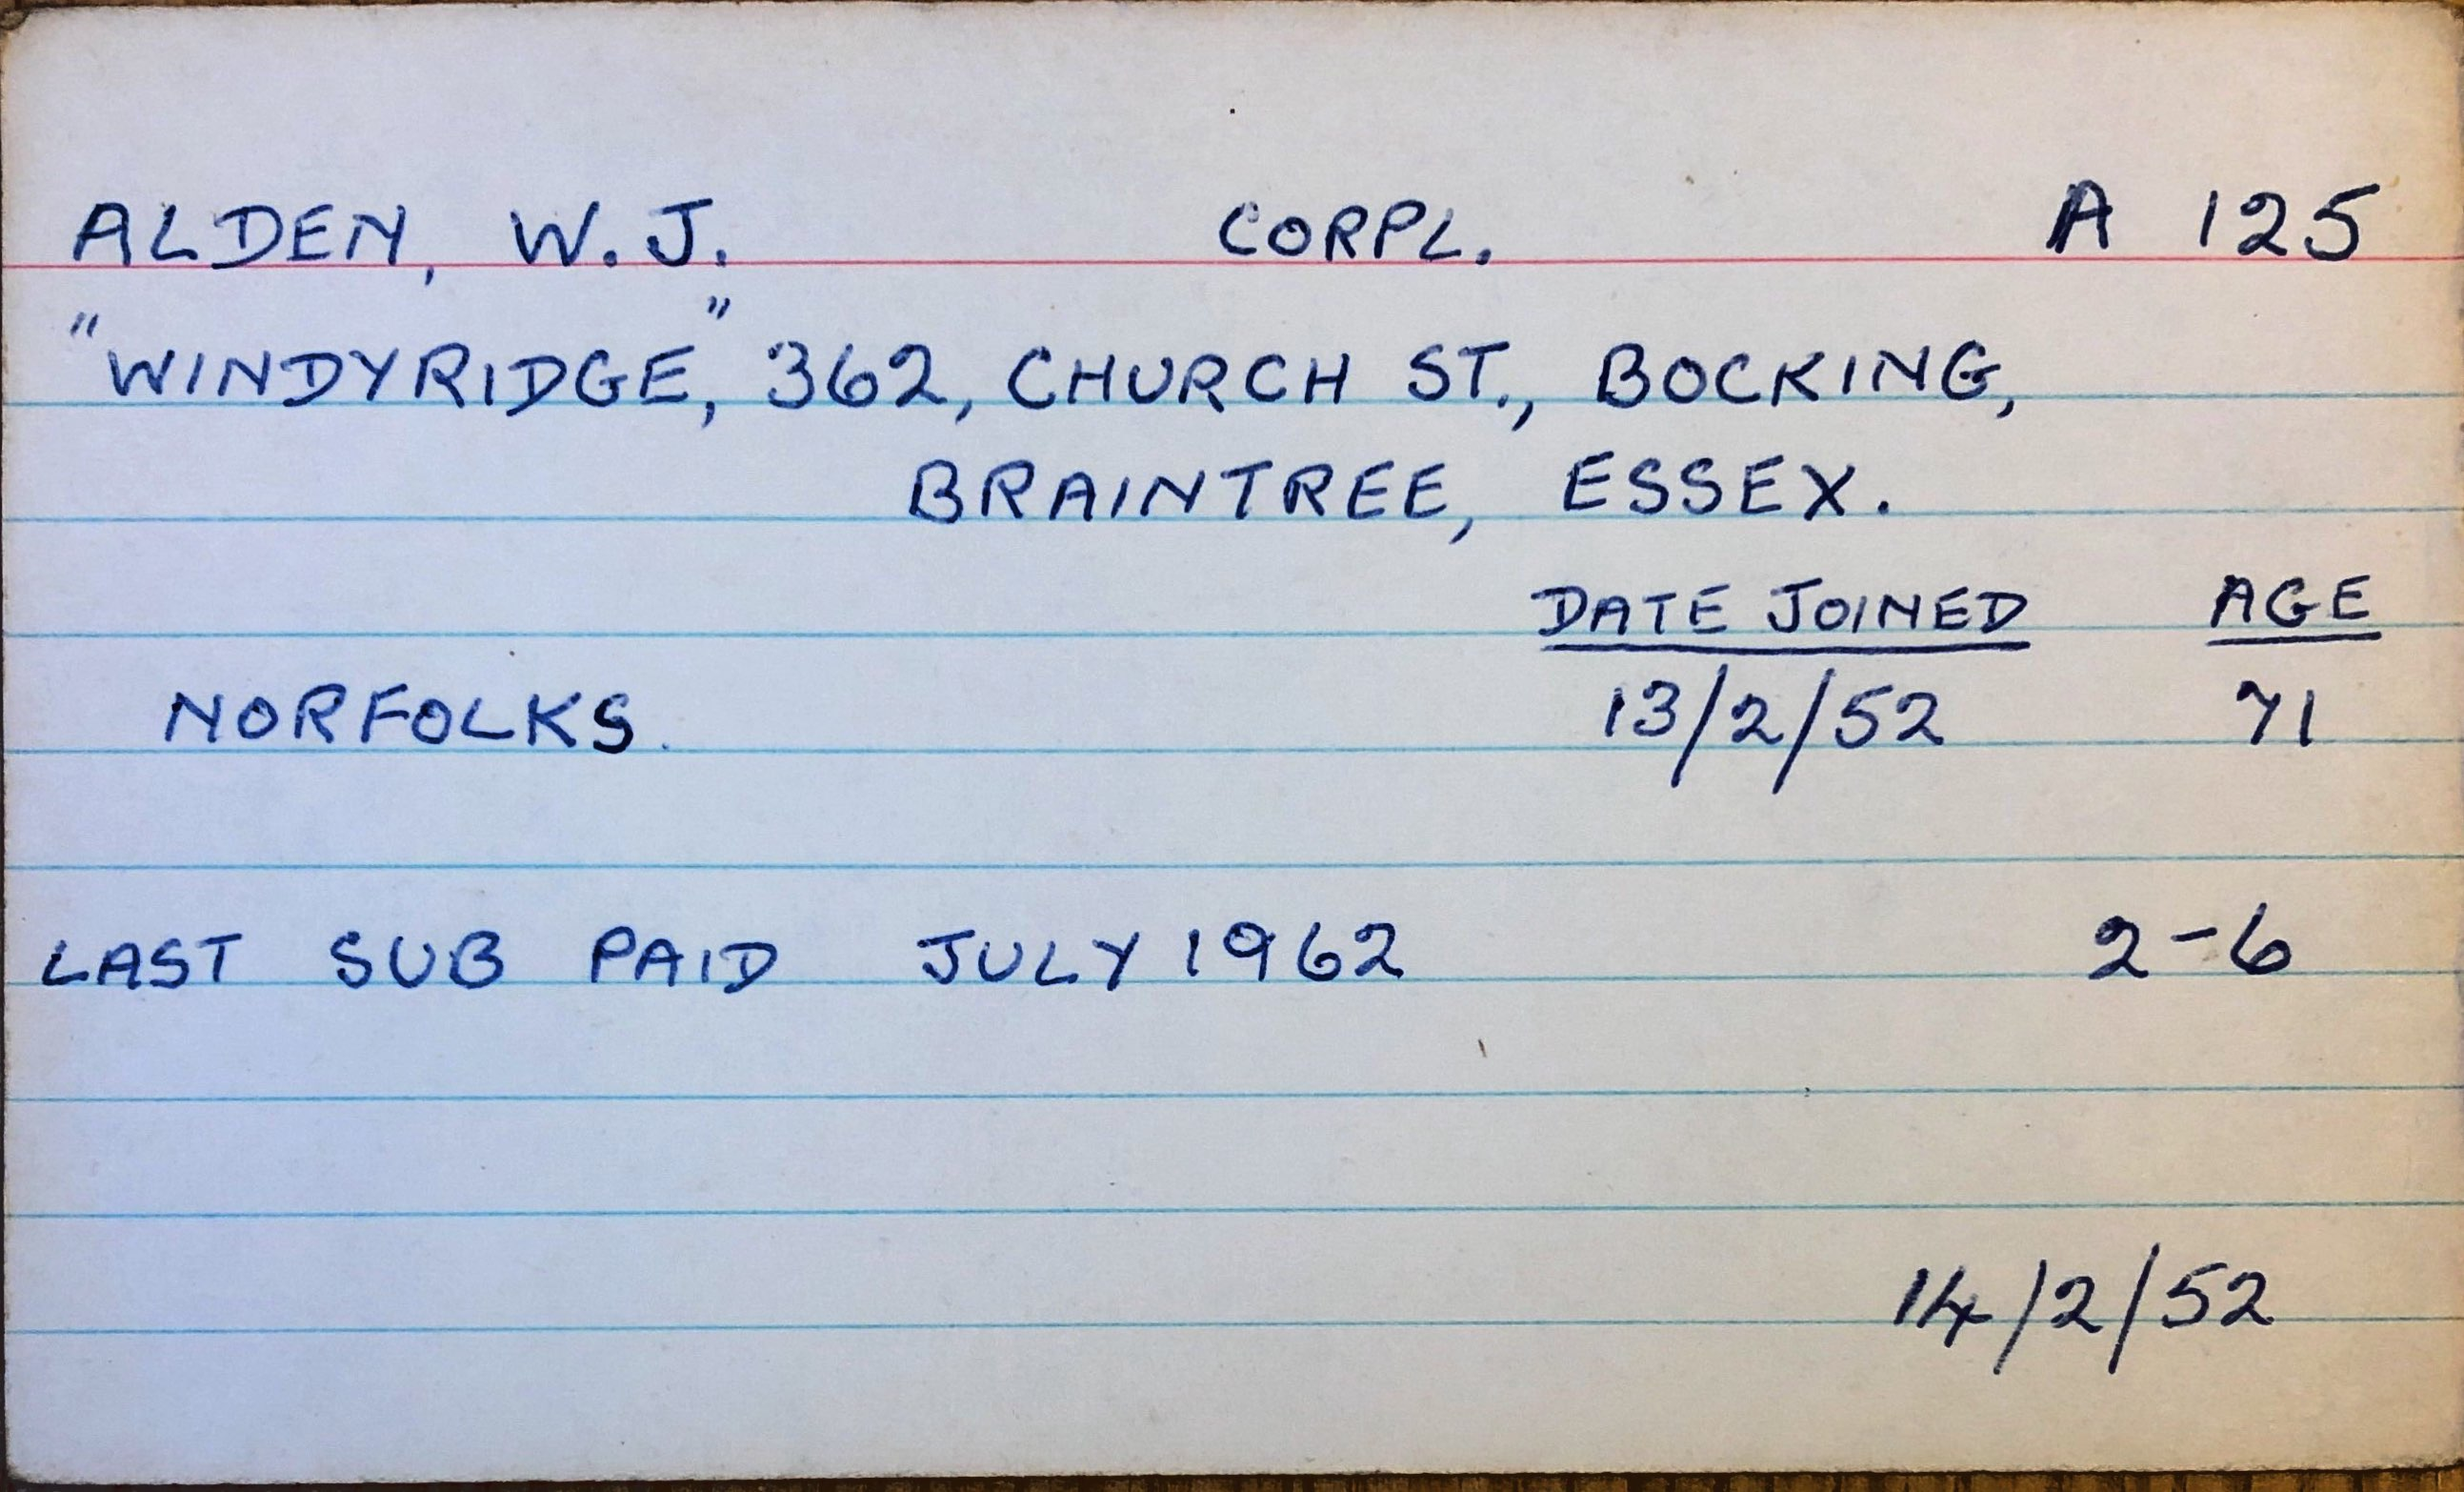 ALDEN, W.J. CORPL. A 125
"WINDYRIDGE," 362, CHURCH ST., BOCKING,
BRAINTREE, ESSEX.
DATE JOINED AGE
NORFOLKS. 13/2/52 71
LAST SUB PAID JULY 1962 2-6
14/2/52